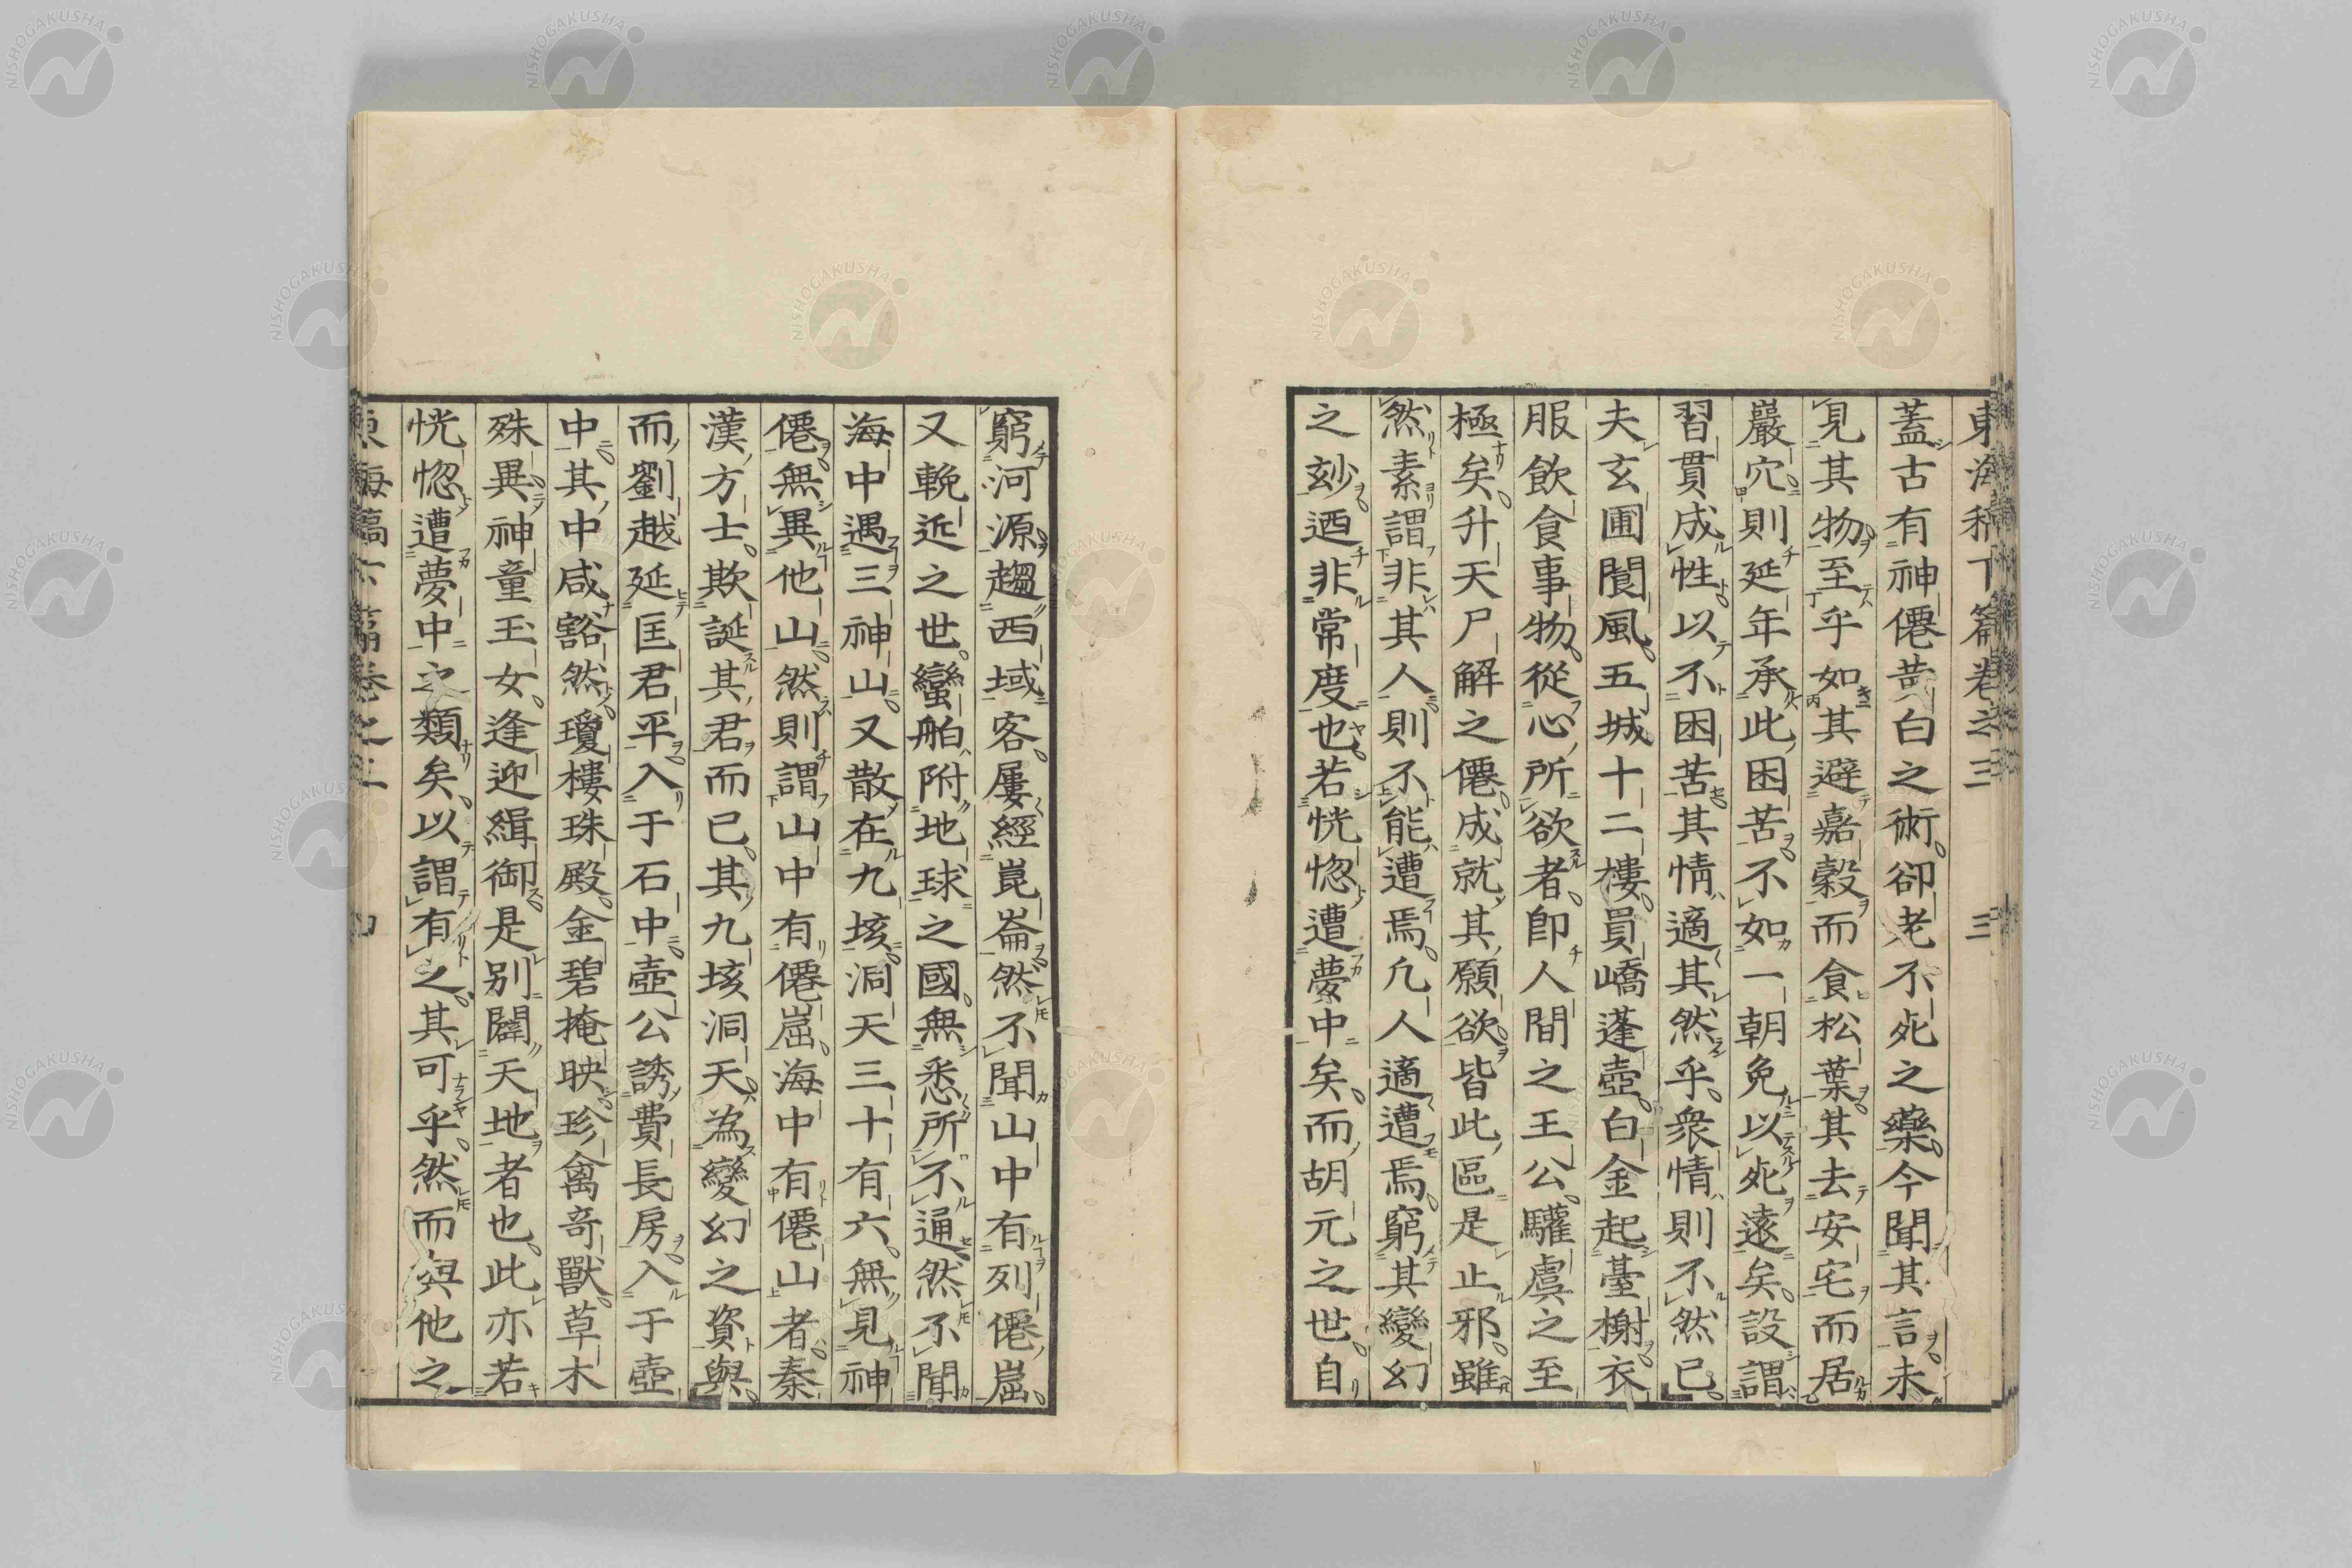 蓋古有神僊黄白之術卻老不死之藥今聞其言未
見其物至乎如其避嘉穀而食松葉其去安宅而居
巖穴則延年承此困苦不如一朝免以死遠矣設謂
習貫成性以不困苦其情適其然乎衆情則不然已
夫玄圃閬風五城十二樓員嶠蓬壺白金起臺榭衣
服飲食事物從心所欲者卽人間之王公驩虞之至
極矣升天尸解之僊成就其願欲皆此區是止邪雖
然素謂非其人則不能遭焉凢人適遭焉窮其變幻
之玅迺非常度也若恍惚遭夢中矣而胡元之世自
窮河源趨西域客屢經崑崙然不聞山中有列僊崫
又輓近之世蠻舶附地球之國無悉所不通然不聞
海中遇三神山又散在九垓洞天三十有六無見神
僊無異他山然則謂山中有僊崫海中有僊山者秦
漢方士欺誕其君而已其九垓洞天為變幻之資與
而劉越延匡君平入于石中壺公誘費長房入于壺
中其中咸豁然瓊樓珠殿金碧掩映珍禽奇獸草木
殊異神童玉女逢迎緝御是別闢天地者也此亦若
恍惚遭夢中之類矣以謂有之其可乎然而與他之
NISHOGAKUSHA